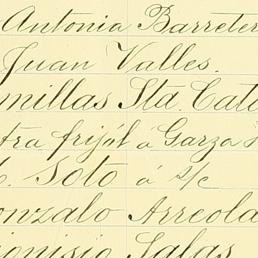 Antonia Barreter
Juan Valles.
millas Sta Cata
tra frijol á Garza
Soto á s/c
onzalo Arreola
ionisio Salas